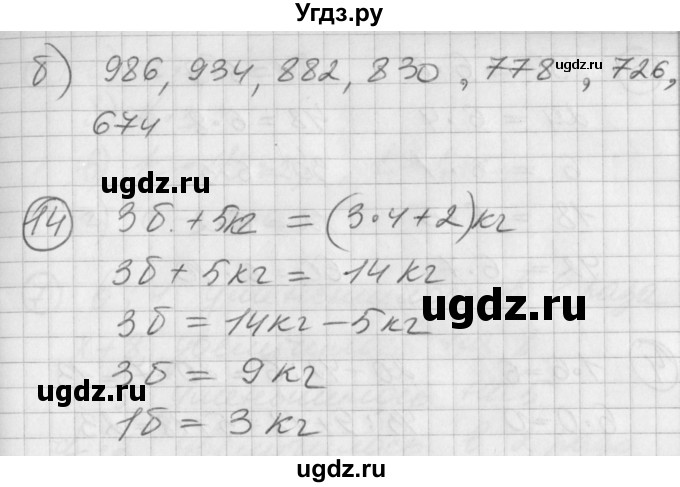 Угдз.ру
б) 986, 934, 882, 830, 778, 726,
ugdz.ru
674
ugdz.ru
14 3б. + 5кг = (3·4+2)кг
3б + 5кг = 14кг
ugdz.ru
3б = 14кг - 5кг
3б = 9кг
ugdz.ru
1б = 3кг
ugdz.ru
ugdz.ru